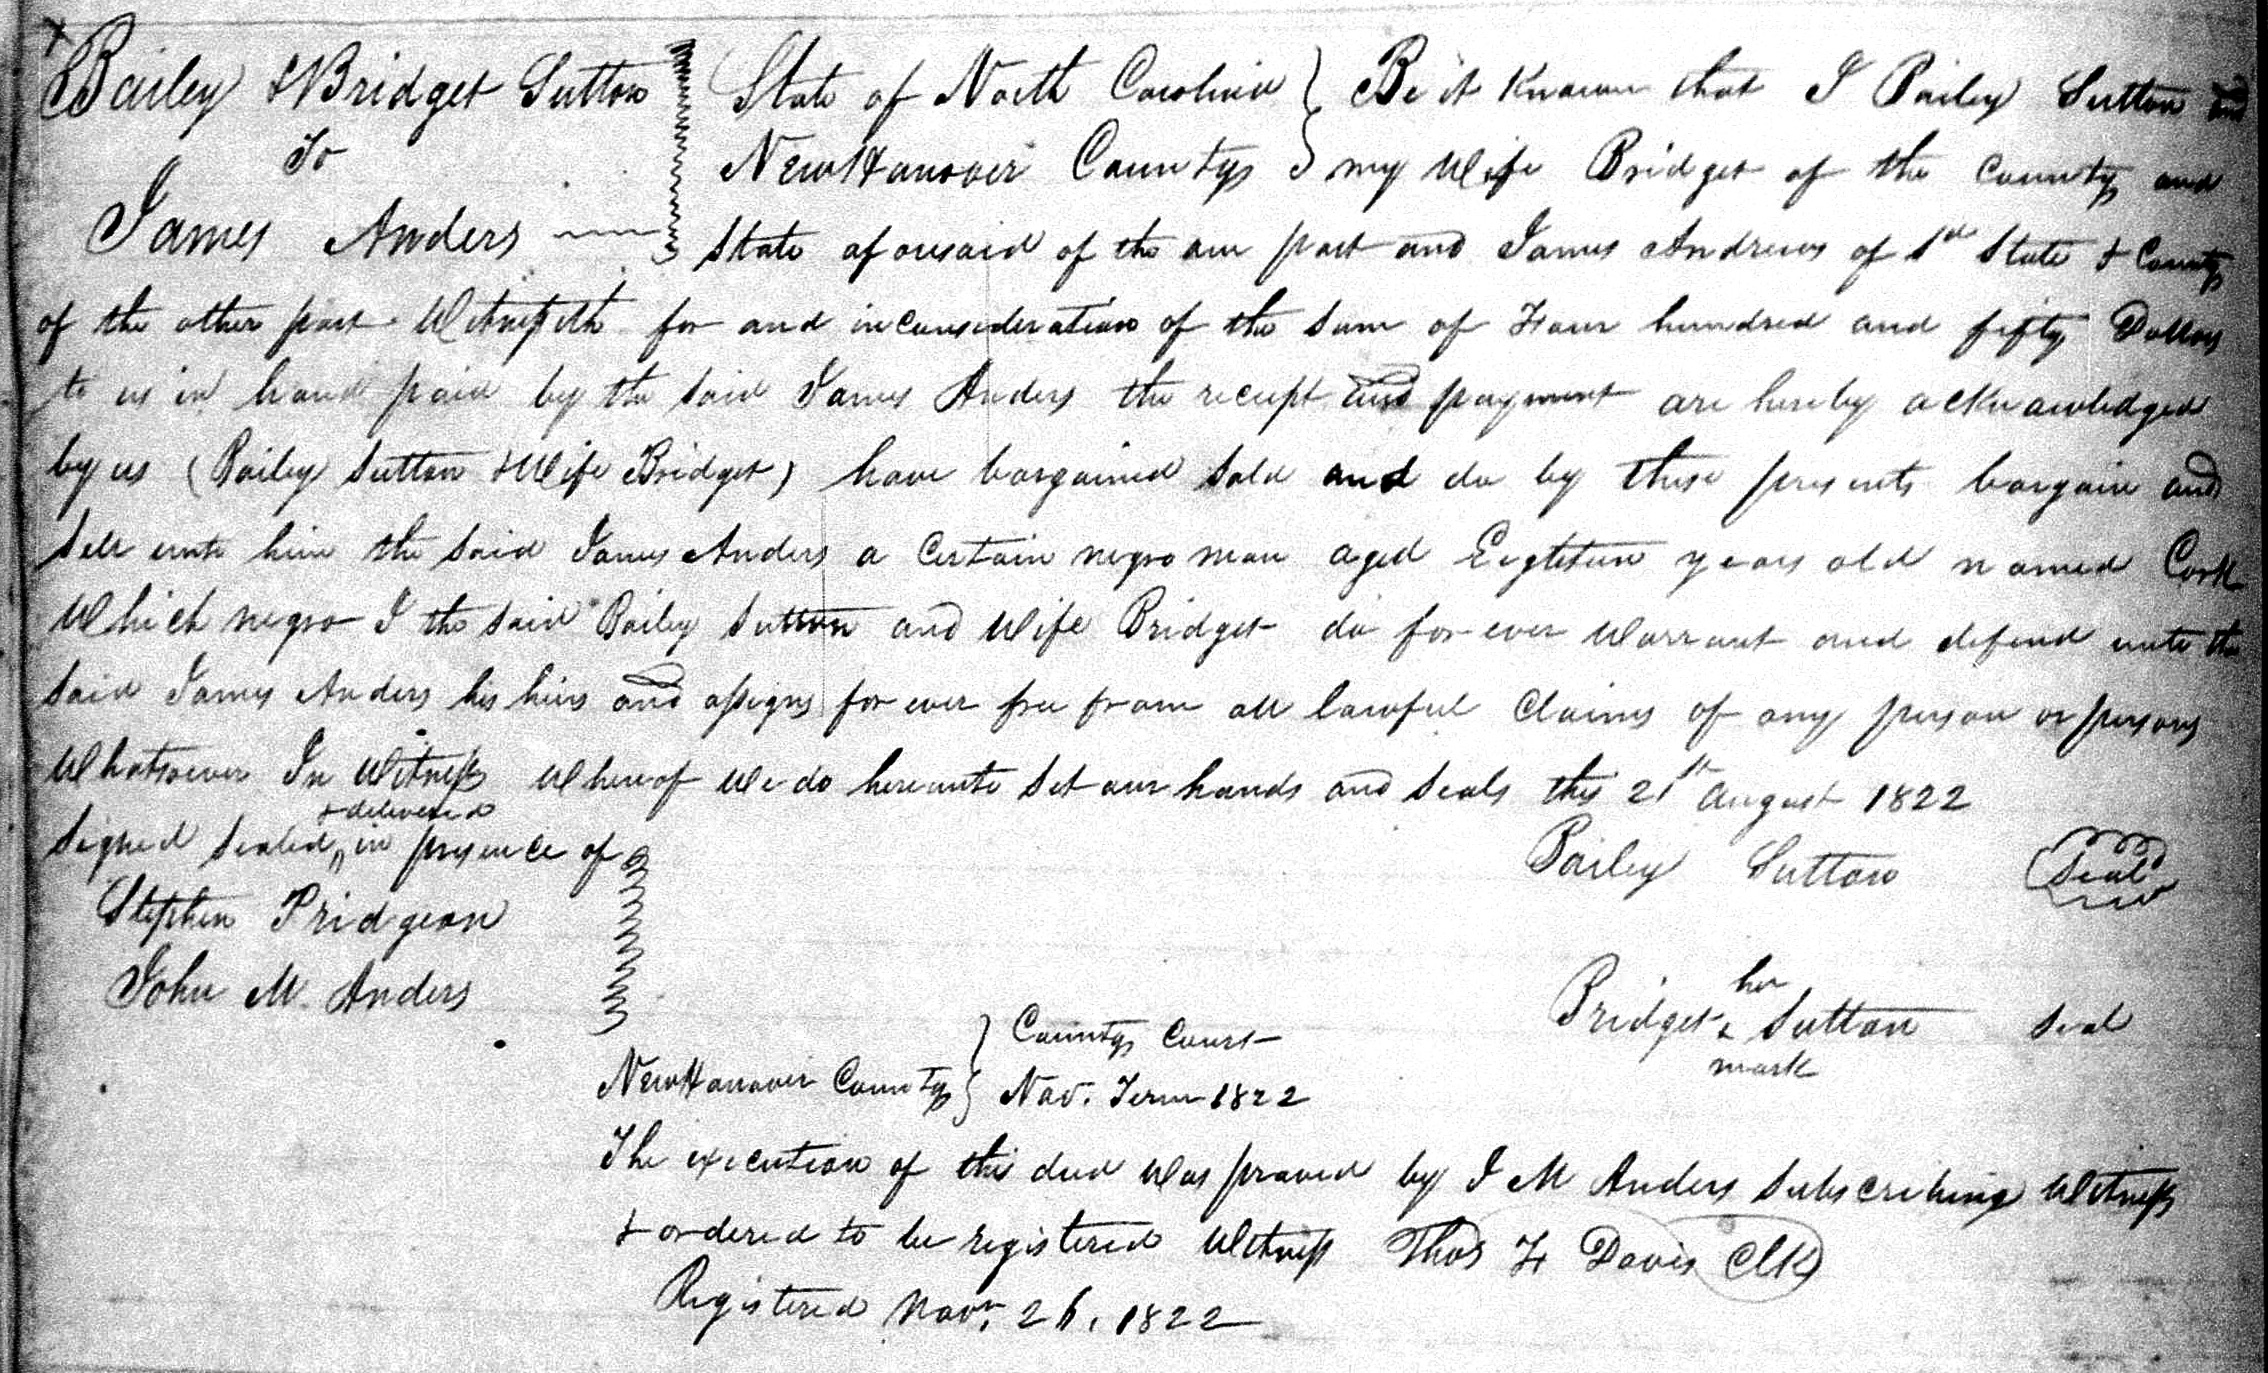 Bailey & Bridget Sutton
To
James Anders
State of North Carolina } Be it Known that I Bailey Sutton and
New Hanover County } my Wife Bridget of the County and
State aforesaid of the one part and James Andrews of Sd State & County
of the other part Witnesseth for and in Consideration of the Sum of Four hundred and fifty Dollars
to us in hand paid by the Said James Anders the receipt and payment are hereby acknowledged
by us (Bailey Sutton & Wife Bridget) have bargained Sold and do by these presents bargain and
Sell unto him the Said James Anders a Certain negro man aged Eigteteen years old named
Which negro I the Said Bailey Sutton and Wife Bridget do for ever Warrant and defend unto the
Said James Anders his heirs and assigns for ever free from all lawful Claims of any person or persons
Whatsoever In Witness Whereof We do hereunto Set our hands and Seals this 21st August 1822
Signed Sealed & delivered in presence of
Stephen Pridgeon
John M. Anders
Bailey Sutton Seal
Bridget her x mark Sutton Seal
New Hanover County } County Court
Nov. Term 1822
The execution of this deed Was proved by J M Anders Subscribing Witness
& ordered to be registered Witness Thos F Davis Clk
Registered Novr. 26, 1822